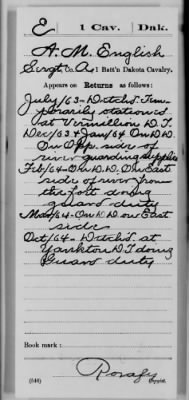 E 1 Cav. Dak.
A. M. English
Sergt Co. A, 1 Batt'n Dakota Cavalry.
Appears on Returns as follows:
July/63-Det'ch'd. Tem-
porarily stationed
at Vermillion D.T.
Dec/63 & Jan/64 On D.D.
On Opp. side of
river guarding supplies
Feb/64-On D.D. On East
side of river from
the Fort doing
guard duty
Mar/64-On D.D. on East
side
Oct/64-Det'ch'd. at
Yankton D.T. doing
Guard duty
Book mark:
(546) Copyist.